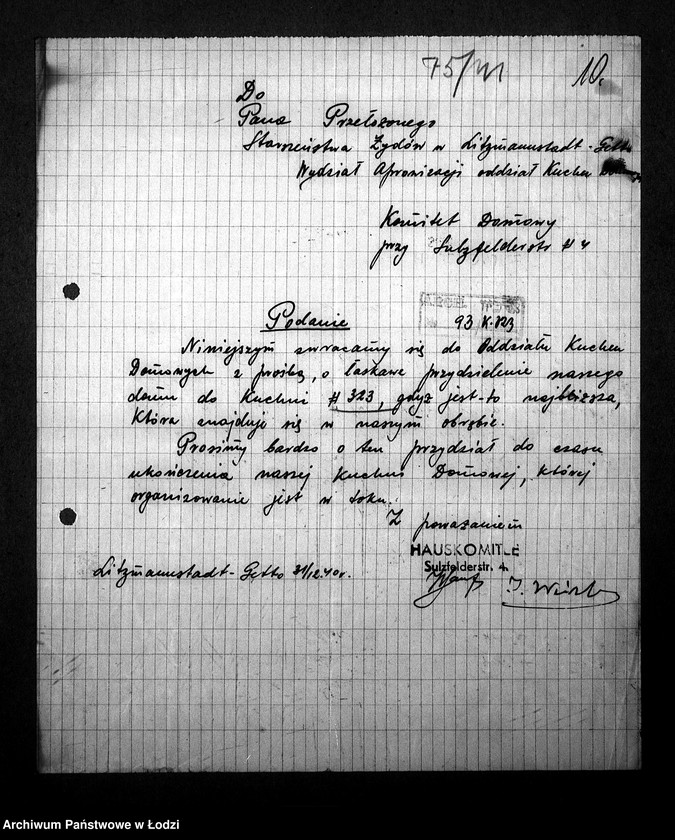 75/41 10.
Do
Pana Przełożonego
Starszeństwa Żydów w Litzmannstadt-Getto
Wydział Aprowizacji oddział Kuchen
Komitet Domowy
przy Sulzfelderstr # 4
Podanie 93 K.323
Niniejszym zwracamy się do Oddziału Kuchen
Domowych z prośbą, o łaskawe przydzielenie naszego
domu do Kuchni # 323, gdyż jest-to najbliższa,
która znajduje się w naszym obrębie.
Prosimy bardzo o ten przydział do czasu
ukończenia naszej Kuchni Domowej, której
organizowanie jest w toku.
Z poważaniem
HAUSKOMITEE
Sulzfelderstr. 4.
Litzmannstadt-Getto 31/12.40r.
Archiwum Państwowe w Łodzi